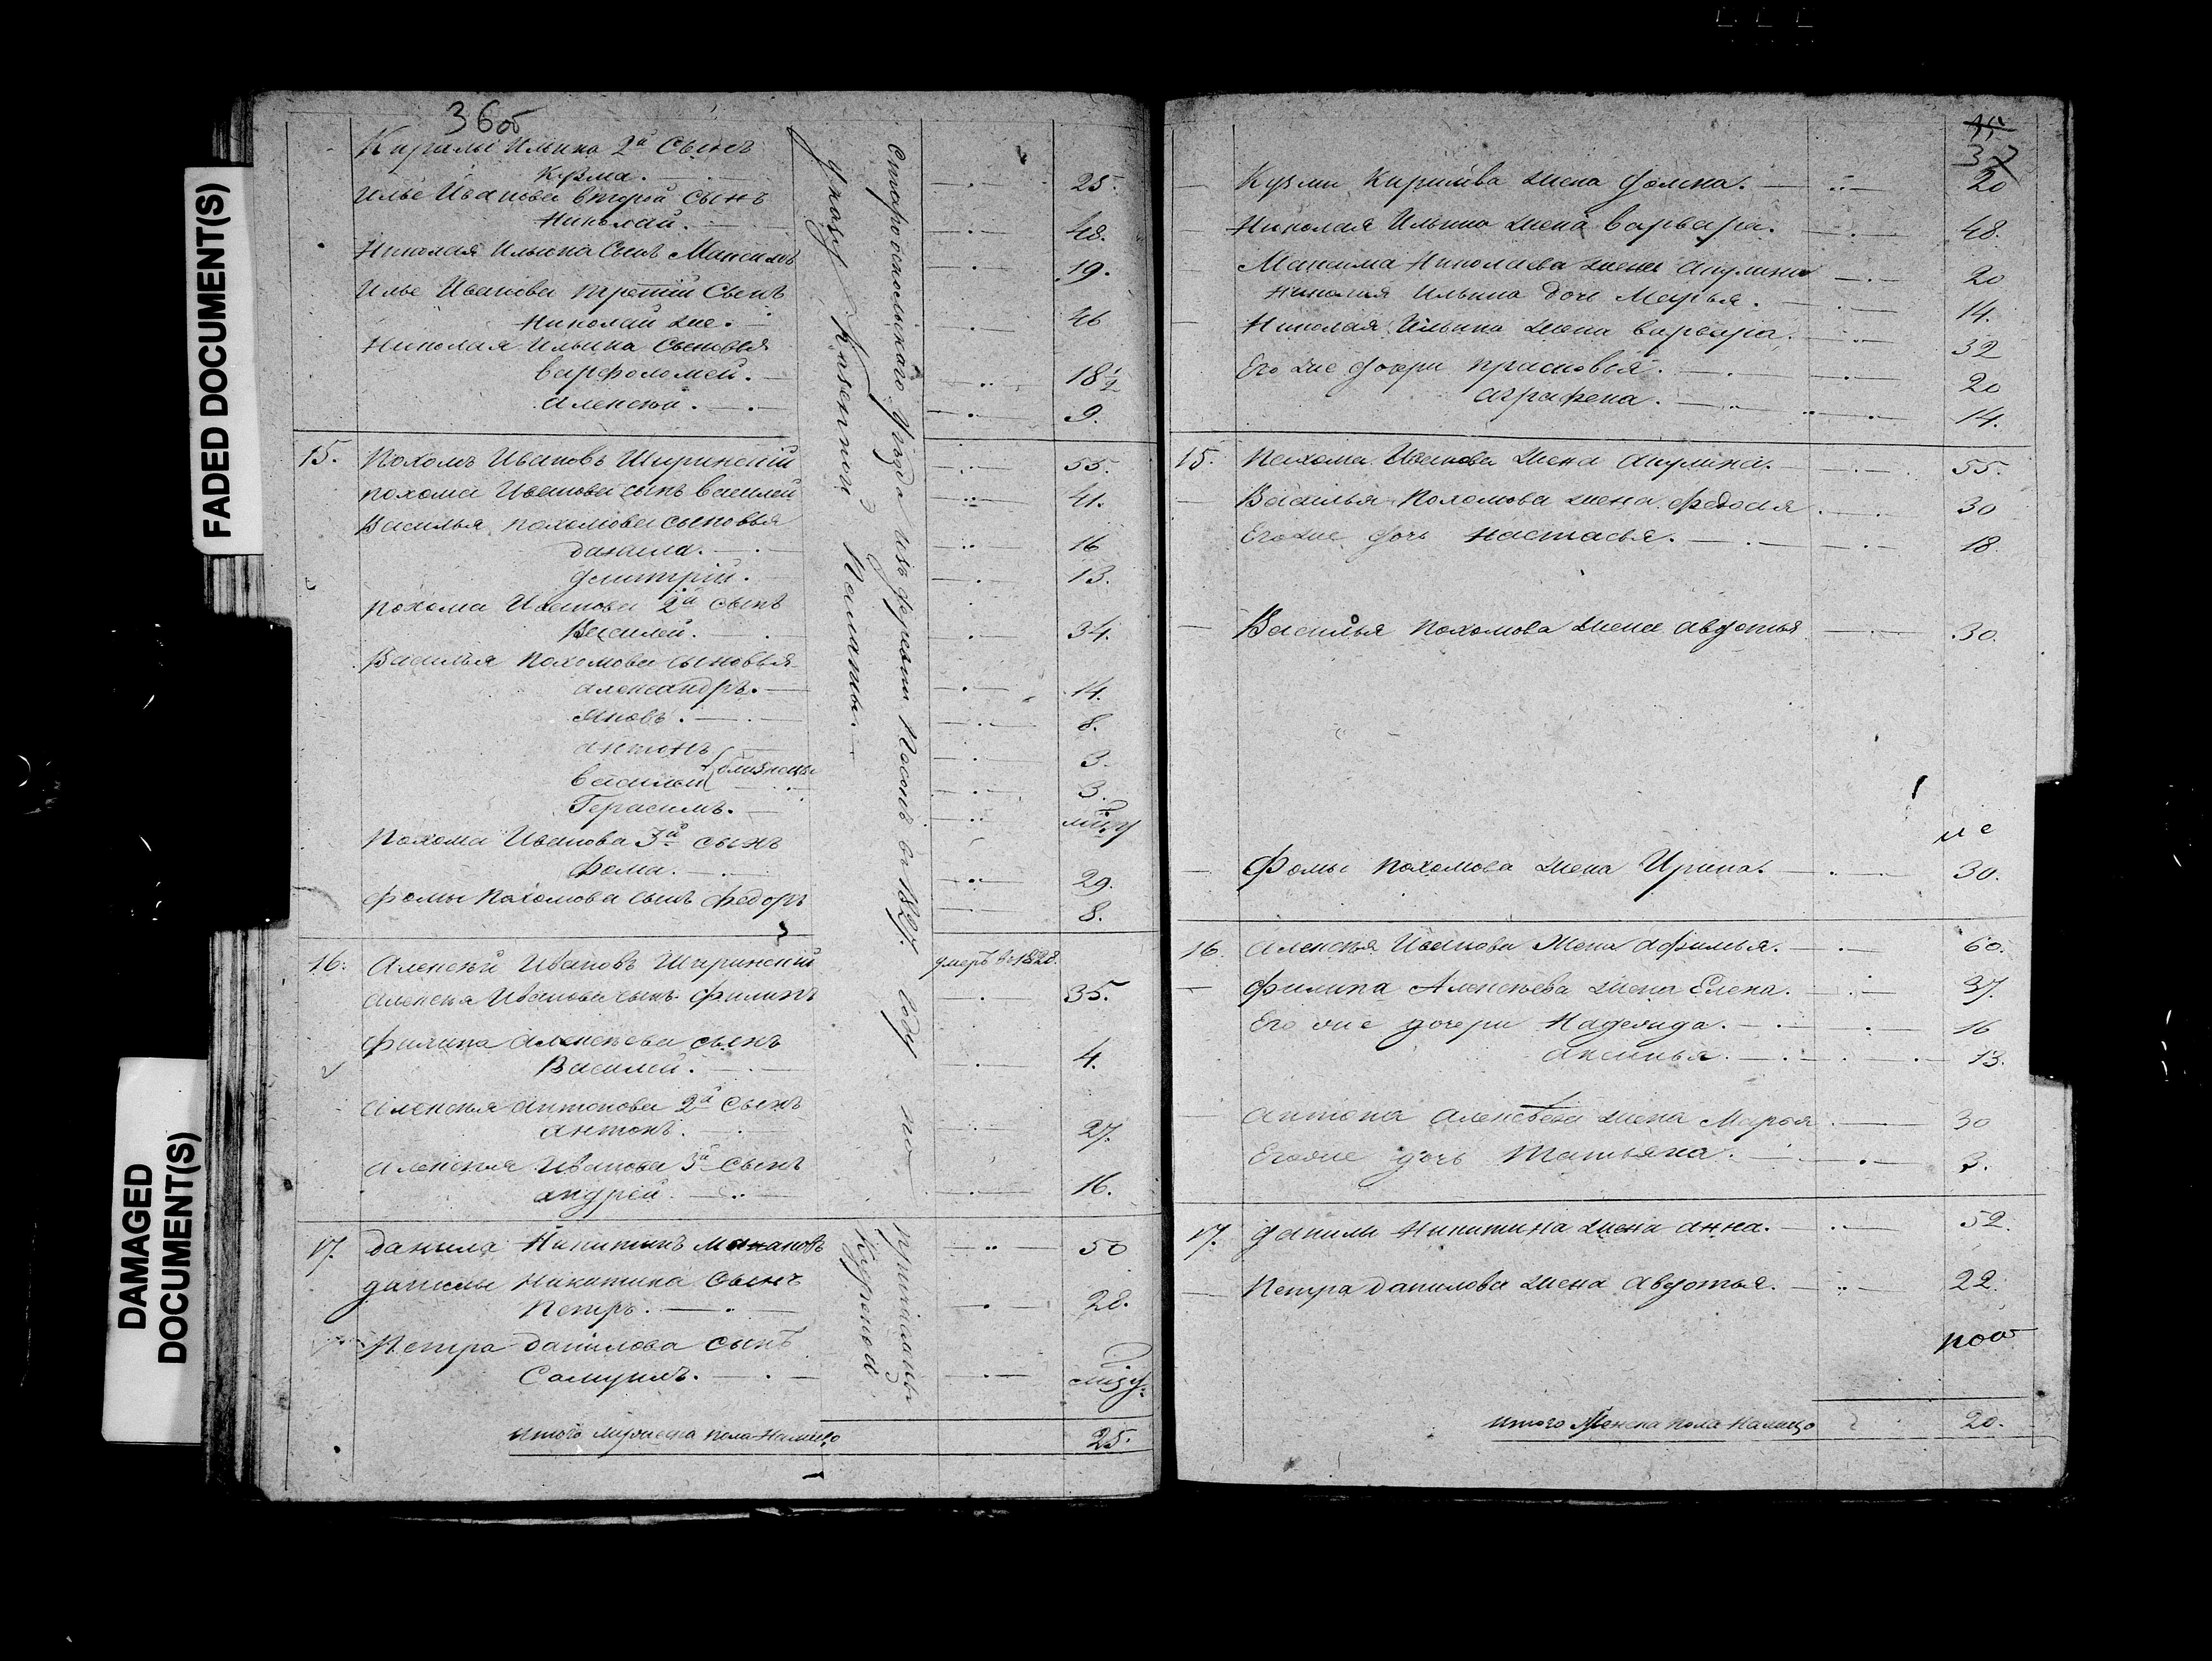 FADED DOCUMENT(S)
DAMAGED
DOCUMENT(S)
36об
Кирилы Ильина 2й Сынъ
Кузма. 25.
Илье Иванова второй Сынъ
Николай. 48.
Николая Ильина Сынъ Максимъ 19.
Илье Иванова третiй Сынъ
Николай же. 46
Николая Ильина Сыновья
варфоломей. 18 1/2
алексей. 9.
15. Похомъ Ивановъ Ширинскiй 55.
похома Иванова сынъ василей 41.
Василья похомова сыновья
данила. 16
дмитрiй. 13.
похома Иванова 2й сынъ
Василей. 34.
Василья похомова сыновья
александръ. 14.
яковъ. 8.
антонъ 3.
василей близнецы 3.
Герасимъ.
Похома Иванова 3й сынъ
фома. 29.
фомы Похомова сынъ федоръ 8.
16. Алексей Ивановъ Ширинскiй умеръ в 1828.
алексея Иванова сынъ филипъ 35.
филипа алексеева сынъ
Василей. 4.
алексея антонова 2й Сынъ
антонъ. 27.
алексея Иванова 3й Сынъ
андрей. 16.
17. данила Никитинъ 50
данилы Никитина Сынъ
Петръ. 28.
Петра данилова сынъ
Самуилъ.
итого мужеска пола налицо 25.
Старооскольскаго уезда изъ деревни в 1827. году по
указу Казенной Палаты
причислены
37
Кузмы Кирилова жена 20
Николая Ильина жена варвара. 48.
Максима Николаева жена акулина 20
Николая Ильина дочь Марья. 14.
Николая Ильина жена варвара. 32
Его же дочери прасковья. 20
аграфена. 14.
15. Похома Иванова жена акулина. 55.
Василья Похомова жена федосья 30
Его же дочь настасья. 18.
Василья похомова жена авдотья 30.
Фомы похомова жена Ирина. 30.
16. алексея Иванова Жена афимья. 60.
филипа Алексеева жена Елена. 37.
Его же дочери Надежда. 16
аксинья. 13.
антона алексеева жена Марья 30
Его же дочь татьяна. 3.
17. данилы Никитина жена анна. 52.
Петра данилова жена авдотья. 22.
итого Женска пола налицо 20.